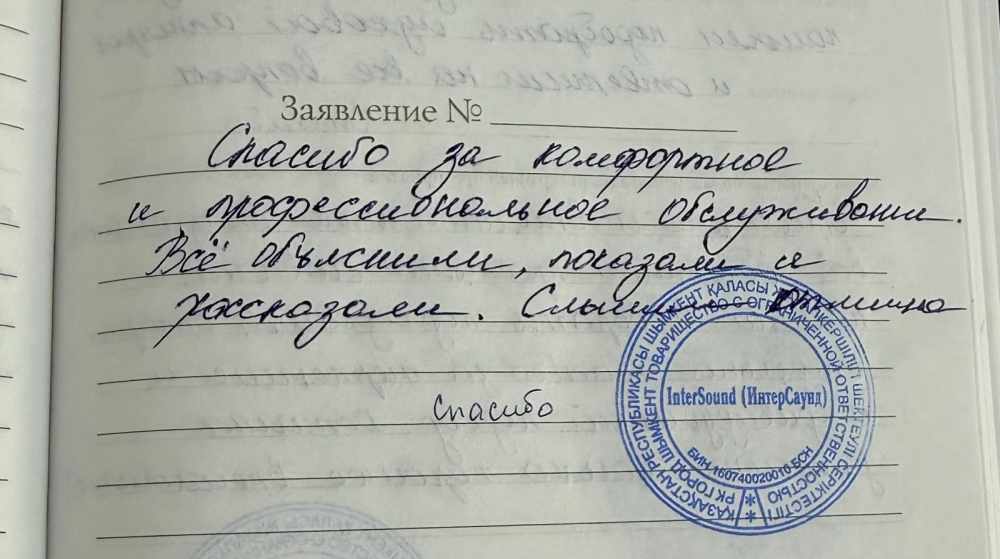 Заявление №
Спасибо за комфортное
и профессиональное обслуживание.
Всё объяснили, показали и
рассказали. Слышу отлично
Спасибо
ҚАЗАҚСТАН РЕСПУБЛИКАСЫ ШЫМКЕНТ ҚАЛАСЫ ЖАУАПКЕРШІЛІГІ ШЕКТЕУЛІ СЕРІКТЕСТІГІ
РК ГОРОД ШЫМКЕНТ ТОВАРИЩЕСТВО С ОГРАНИЧЕННОЙ ОТВЕТСТВЕННОСТЬЮ
InterSound (ИнтерСаунд)
БИН 160740020010 БСН